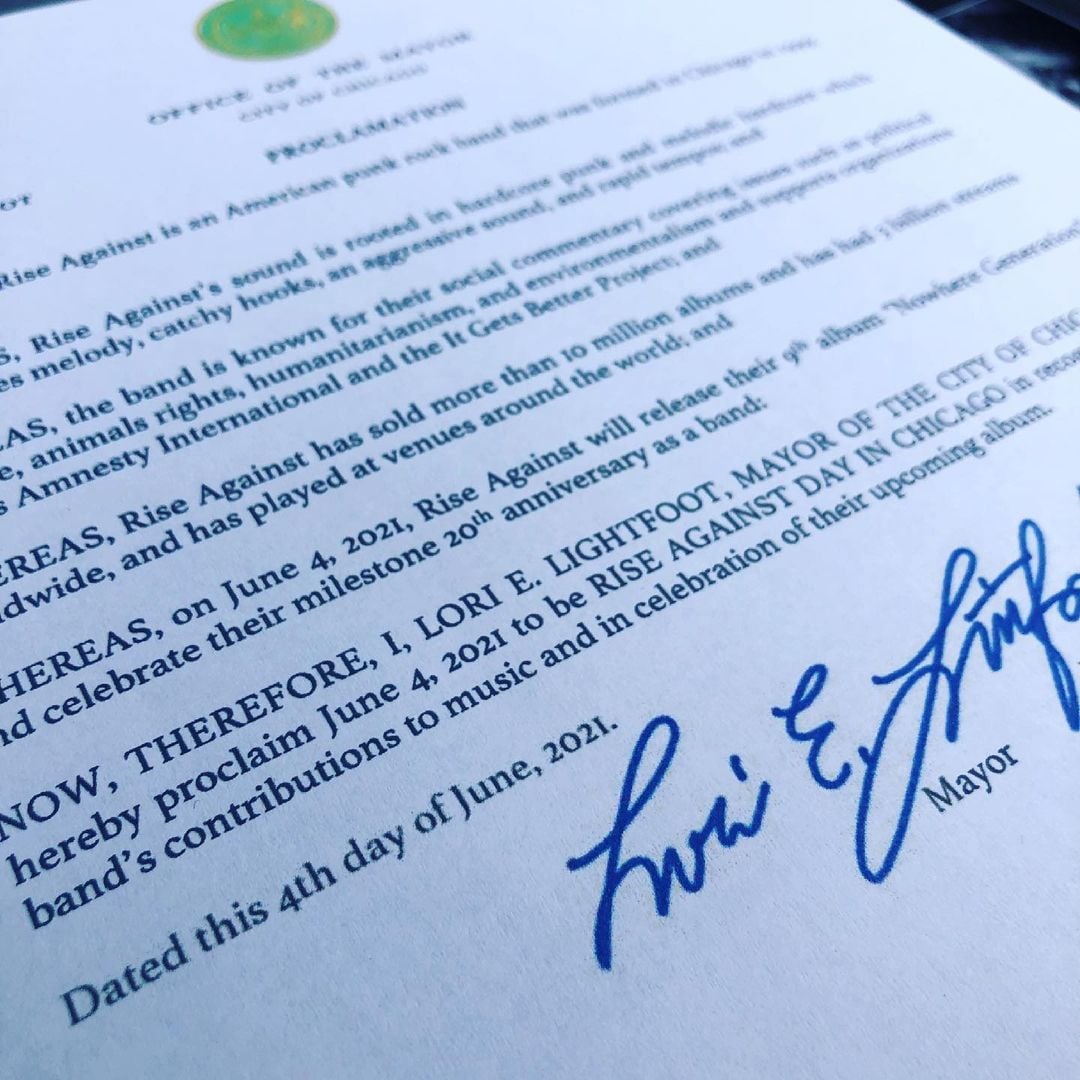 OFFICE OF THE MAYOR
CITY OF CHICAGO
PROCLAMATION
OT
Rise Against is an American punk rock band that was formed in Chicago in
S, Rise Against's sound is rooted in hardcore punk and melodic hardcore which
es melody, catchy hooks, an aggressive sound, and rapid tempos and
EAS, the band is known for their social commentary covering issues such as political
e, animals rights, humanitarianism, and environmentalism and supports organizations
s Amnesty International and the It Gets Better Project; and
EREAS, Rise Against has sold more than 10 million albums and has had 5 billion streams
ldwide, and has played at venues around the world; and
HEREAS, on June 4, 2021, Rise Against will release their 9th album "Nowhere Generation
nd celebrate their milestone 20th anniversary as a band:
NOW, THEREFORE, I, LORI E. LIGHTFOOT, MAYOR OF THE CITY OF CHIC
hereby proclaim June 4, 2021 to be RISE AGAINST DAY IN CHICAGO in recog
band's contributions to music and in celebration of their upcoming album.
Dated this 4th day of June, 2021.
Lori E. Lightfo
Mayor